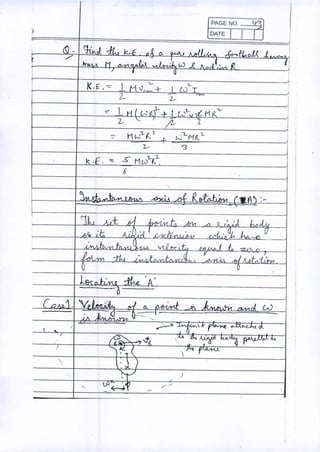 PAGE NO. 43
DATE
Q:- Find the K.E. of a pure rolling football having
mass M, angular velocity ω & radius R
K.E. = 1/2 M Vcm² + 1/2 ω² Icm
= 1/2 M(ωR)² + 1/2 ω² × 2/3 MR²
= Mω²R²/2 + ω²MR²/3
K.E. = 5/6 Mω²R²
Instantaneous axis of Rotation (IA):-
The set of points on a rigid body
or its rigid extension which have
instantaneous velocity equal to zero,
form the instantaneous axis of rotation.
Locating the 'IA'
Case 1 Velocity of a point is known and ω
is known
→ Infinite plane attached
to the rigid body parallel to
the plane
ω
P